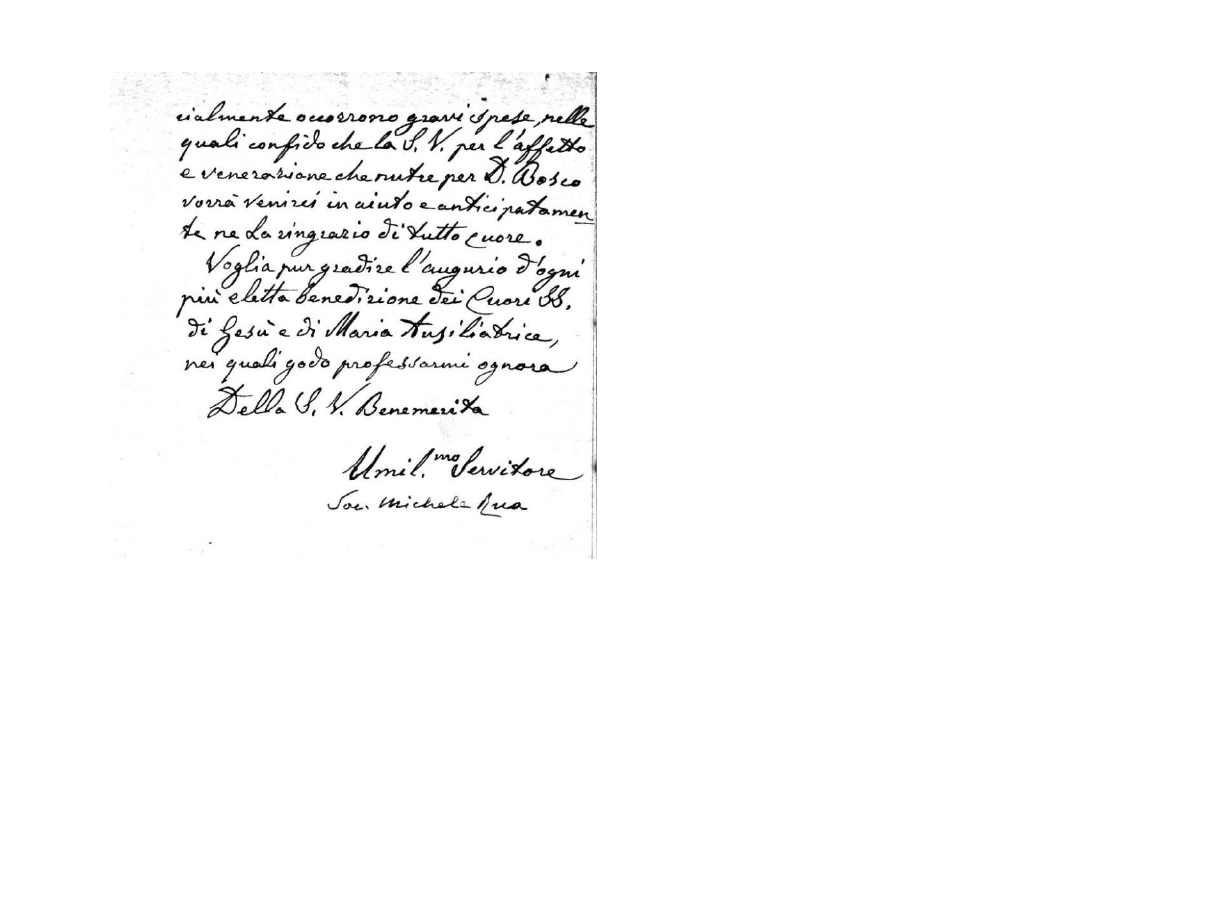 cialmente occorrono gravi spese, nelle
quali confido che la S. V. per l'affetto
e venerazione che nutre per D. Bosco
vorrà venirci in aiuto e anticipatamen
te ne La ringrazio di tutto cuore.
Voglia pur gradire l'augurio d'ogni
più eletta benedizione dei Cuori SS.
di Gesù e di Maria Ausiliatrice,
nei quali godo professarmi ognora
Della S. V. Benemerita
Umil.mo Servitore
Sac. Michele Rua